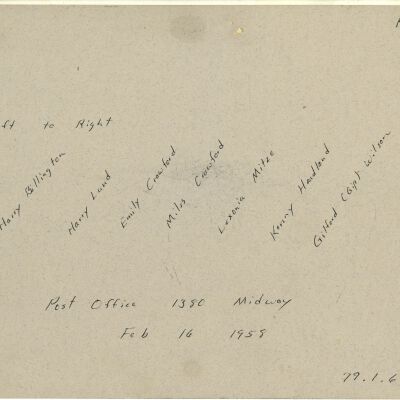 ft to Right
Harry Billington
Harry Lund
Emily Crawford
Milos Crawford
Lexonia Mitze
Kenny Headland
Gifford (Gip) Wilson
Post Office 1380 Midway
Feb 16 1958
79.1.6